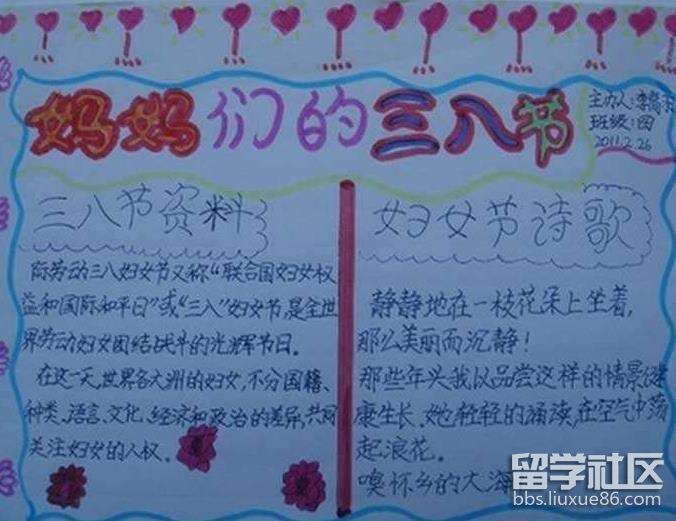 妈妈们的三八节
主办人:李
班级:四
2011.2.26
三八节资料
际劳动三八妇女节又称“联合国妇女权
益和国际和平日”或“三八”妇女节,是全世
界劳动妇女团结战斗的光辉节日。
在这一天,世界各大洲的妇女,不分国籍、
种类、语言、文化、经济和政治的差异,共同
关注妇女的人权。
妇女节诗歌
静静地在一枝花朵上坐着,
那么美丽而沉静!
那些年头我以品尝这样的情景健
康生长、她轻轻的涌读,在空气中荡
起浪花。
噢怀乡的大海
留学社区
bbs.liuxue86.com